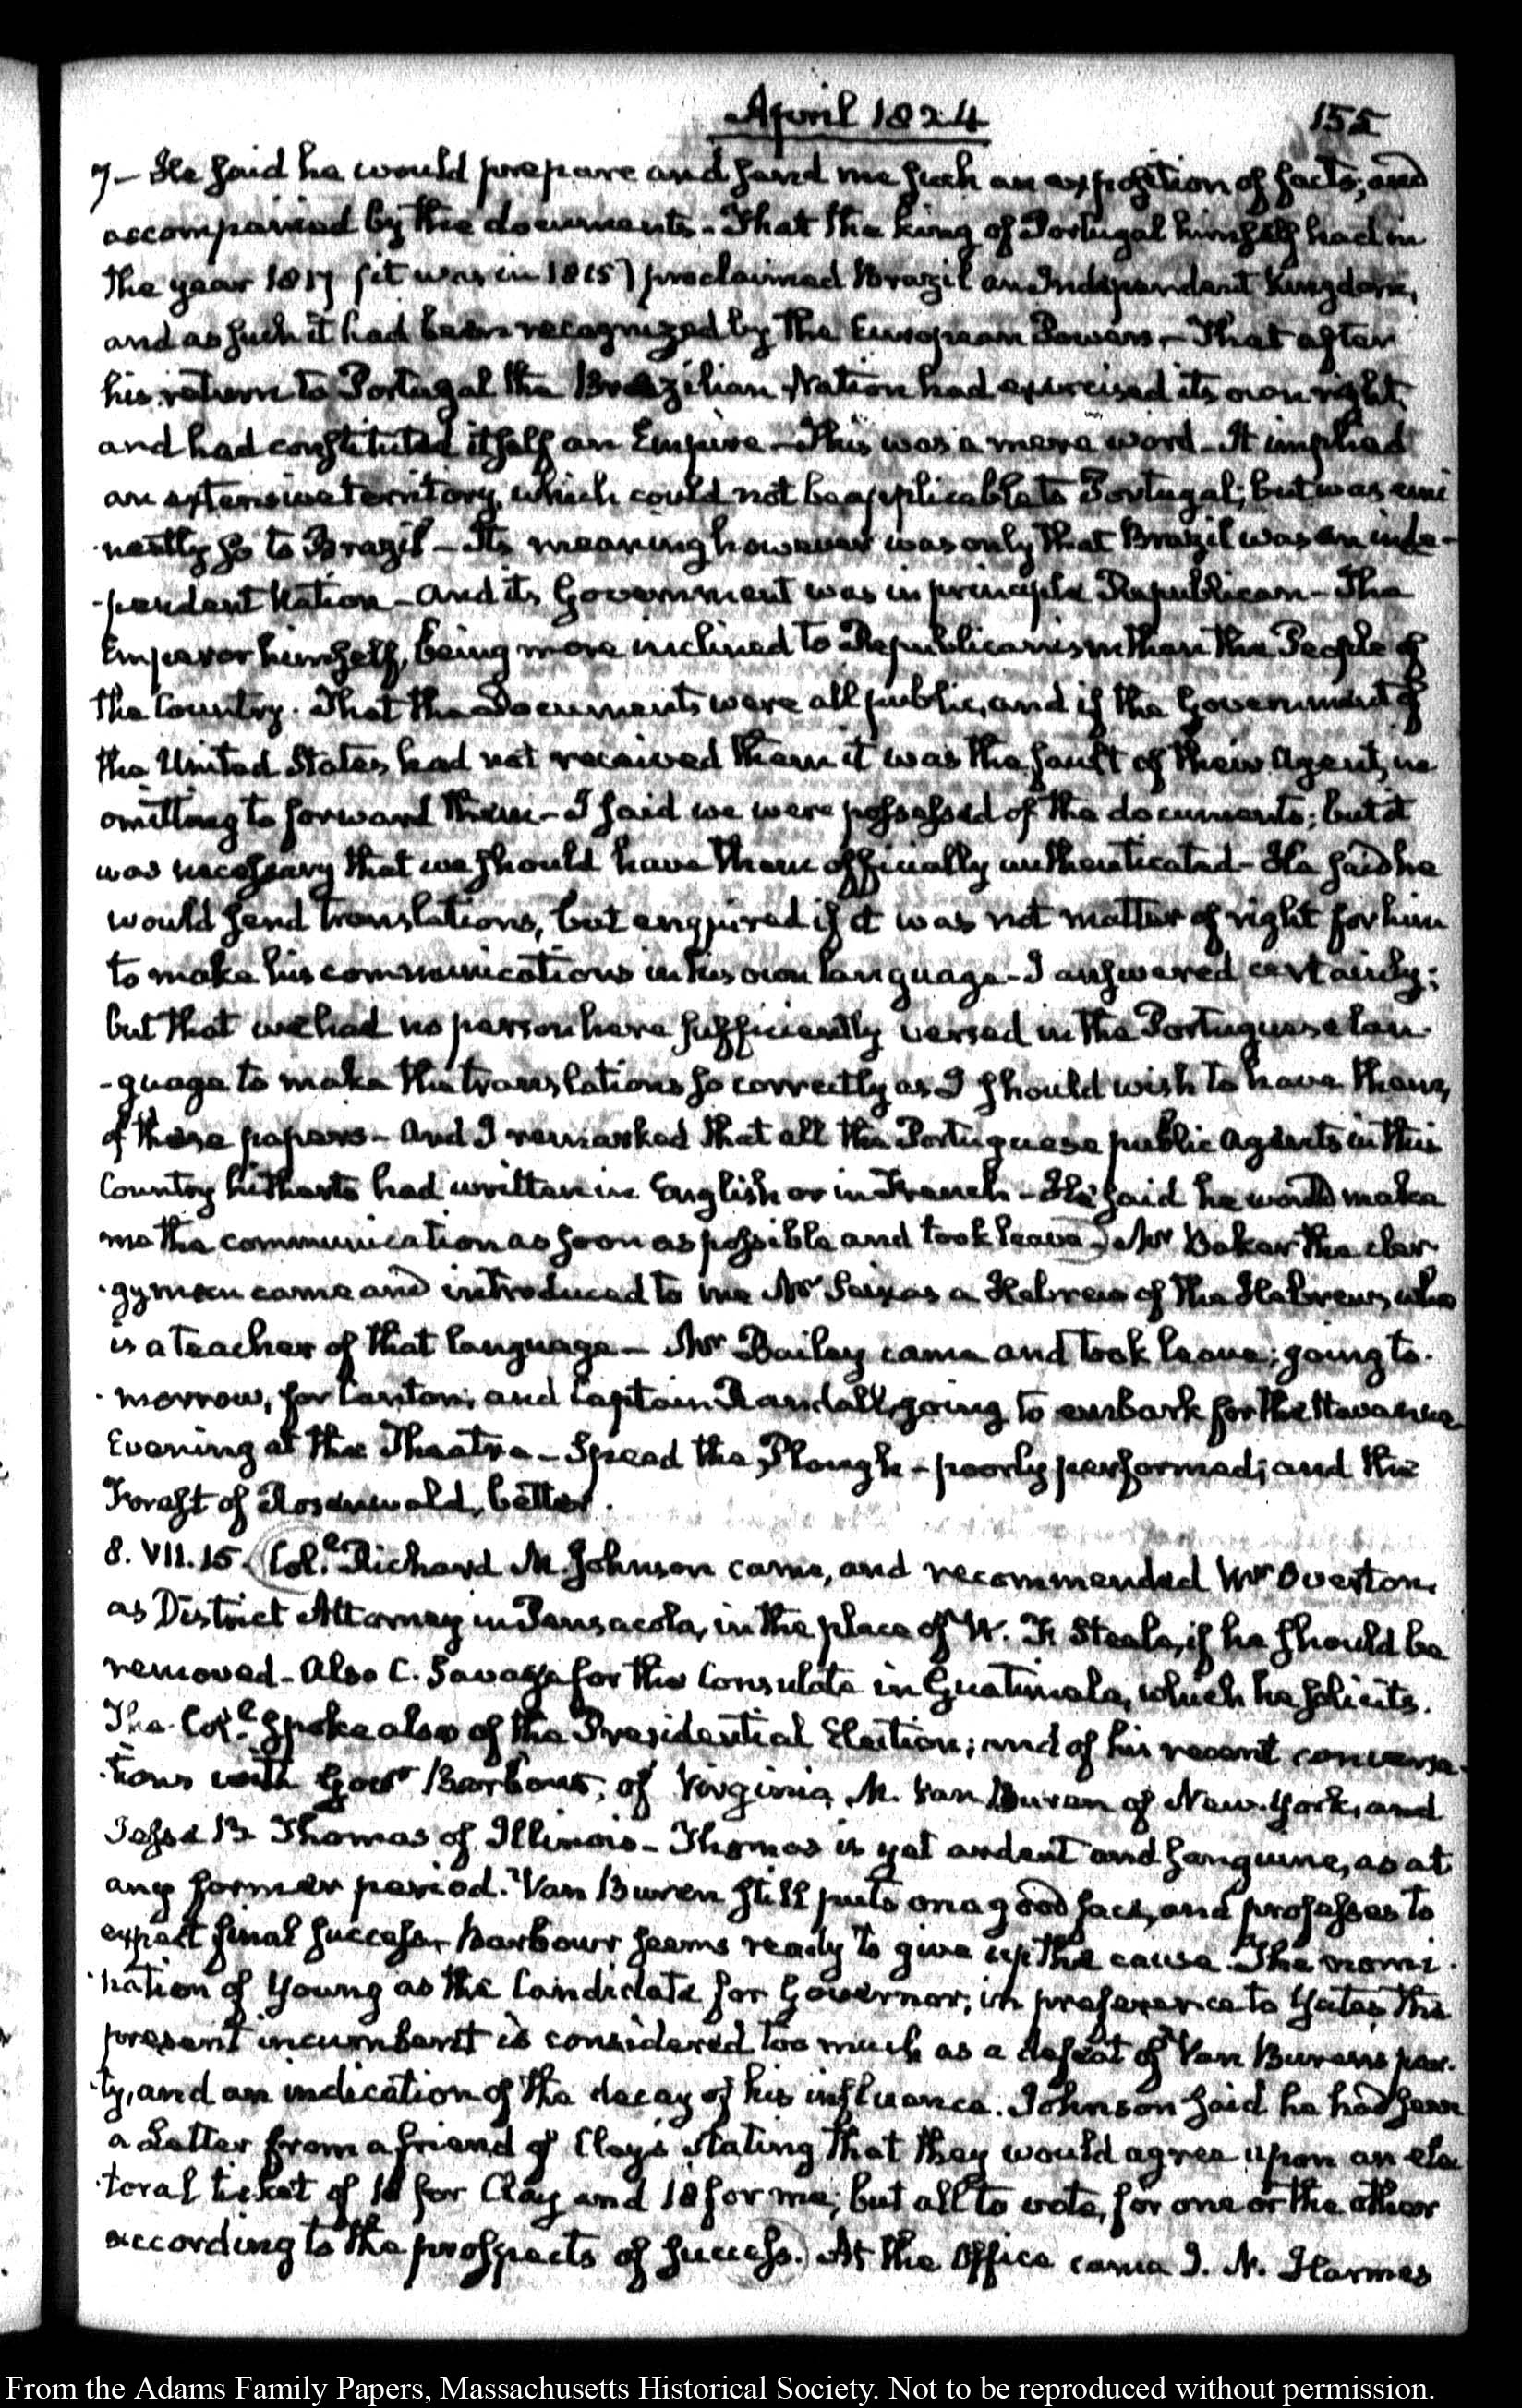 April 1824
155
7 — He said he would prepare and send me such an exposition of facts; and
accompanied by the documents. That the king of Portugal himself had in
the year 1817 (it was in 1815) proclaimed Brazil an Independent Kingdom,
and as such it had been recognized by the European Powers — That after
his return to Portugal the Brazilian Nation had exercised its own right,
and had constituted itself an Empire — This was a mere word — It implied
an extensive territory, which could not be applicable to Portugal; but was emi
-nently so to Brazil — Its meaning however was only that Brazil was an inde-
-pendent Nation — And its Government was in principle Republican — The
Emperor himself, being more inclined to Republicanism than the People of
the Country. That the Documents were all public, and if the Government of
the United States had not received them it was the fault of their Agent, in
omitting to forward them — I said we were possessed of the documents; but it
was necessary that we should have them officially authenticated — He said he
would send translations, but enquired if it was not matter of right for him
to make his communications in his own language — I answered certainly;
but that we had no person here sufficiently versed in the Portuguese lan-
-guage to make the translations so correctly as I should wish to have them,
of these papers — And I remarked that all the Portuguese public Agents in this
Country hitherto had written in English or in French — He said he would make
me the communication as soon as possible and took leave. Mr Baker the cler
-gyman came and introduced to me Mr Seixas a Hebrew of the Hebrews, who
is a teacher of that language — Mr Bailey came and took leave; going to-
-morrow, for Canton; and Captain Randall, going to embark for the Havanna
Evening at the Theatre — Speed the Plough — poorly performed; and the
Forest of Rosenwald, better.
8. VII. 15. Col.l Richard M. Johnson came, and recommended Mr Overton
as District Attorney in Pensacola, in the place of W. F. Steele, if he should be
removed — Also C. Savage for the Consulate in Guatimala, which he solicits.
The Col.l spoke also of the Presidential Election; and of his recent conversa-
-tions with Govr Barbour, of Virginia, M. Van Buren of New-York, and
Jesse B. Thomas of Illinois — Thomas is yet ardent and sanguine, as at
any former period. Van Buren still puts on a good face, and professes to
expect final success — Barbour seems ready to give up the cause. The nomi-
-nation of Young as the Candidate for Governor, in preference to Yates, the
present incumbent is considered too much as a defeat of Van Buren's par-
-ty, and an indication of the decay of his influence. Johnson said he had seen
a Letter from a friend of Clay's stating that they would agree upon an elec
-toral ticket of 18 for Clay and 18 for me; but all to vote, for one or the other
according to the prospects of success. At the Office came J. N. Harmes
From the Adams Family Papers, Massachusetts Historical Society. Not to be reproduced without permission.